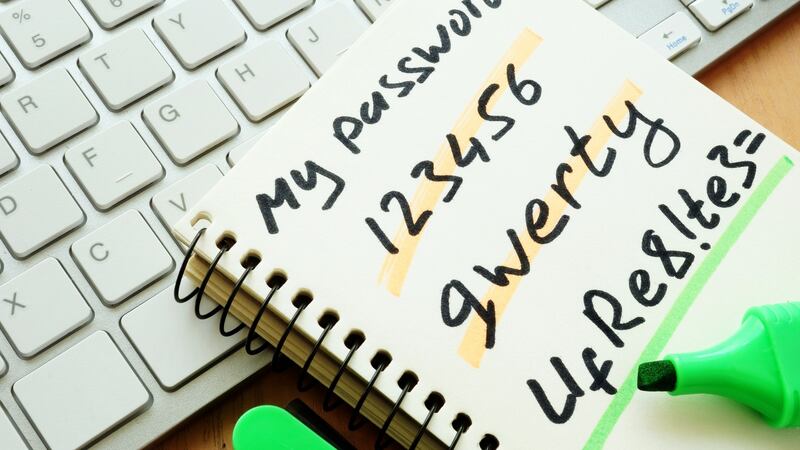 My password
123456
qwerty
UfRe8!te3=
%
5
R T Y
D F G H J
X C V
Home
PgDn